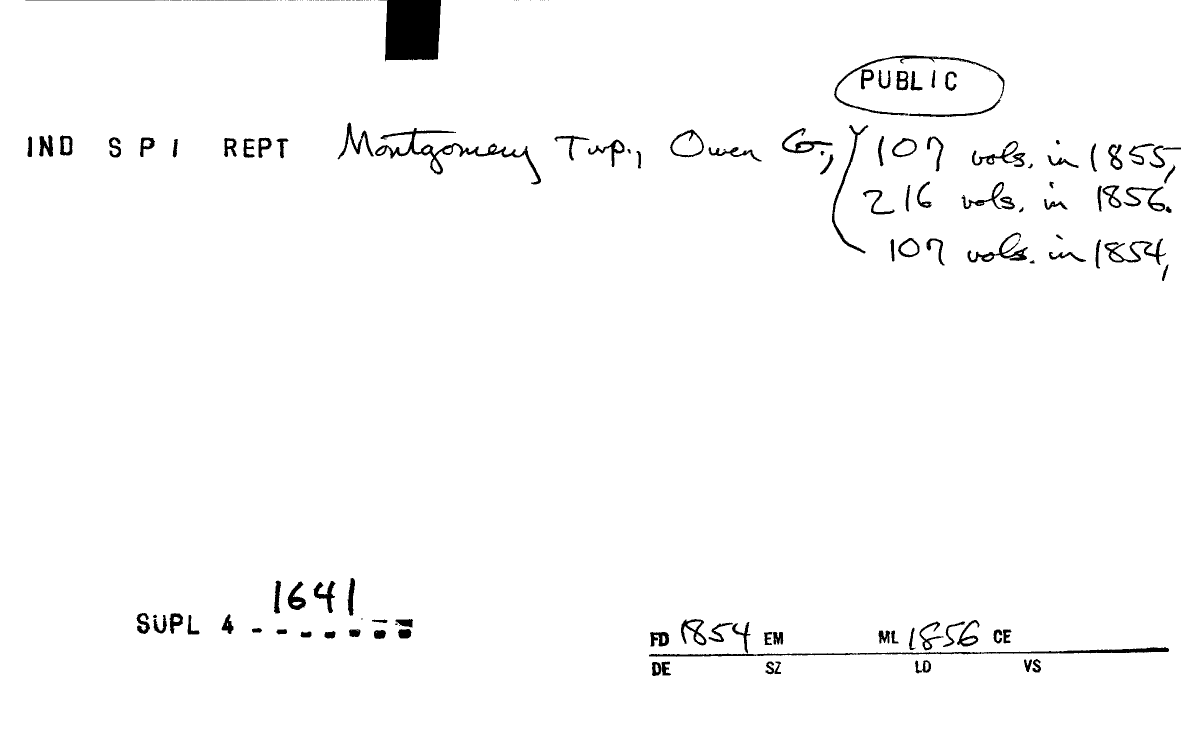 PUBLIC
IND S P I REPT Montgomery Twp., Owen Co., 107 vols. in 1855,
216 vols. in 1856.
107 vols. in 1854,
1641
SUPL 4 - - - - - - -
FD 1854 EM ML 1856 CE
DE SZ LD VS